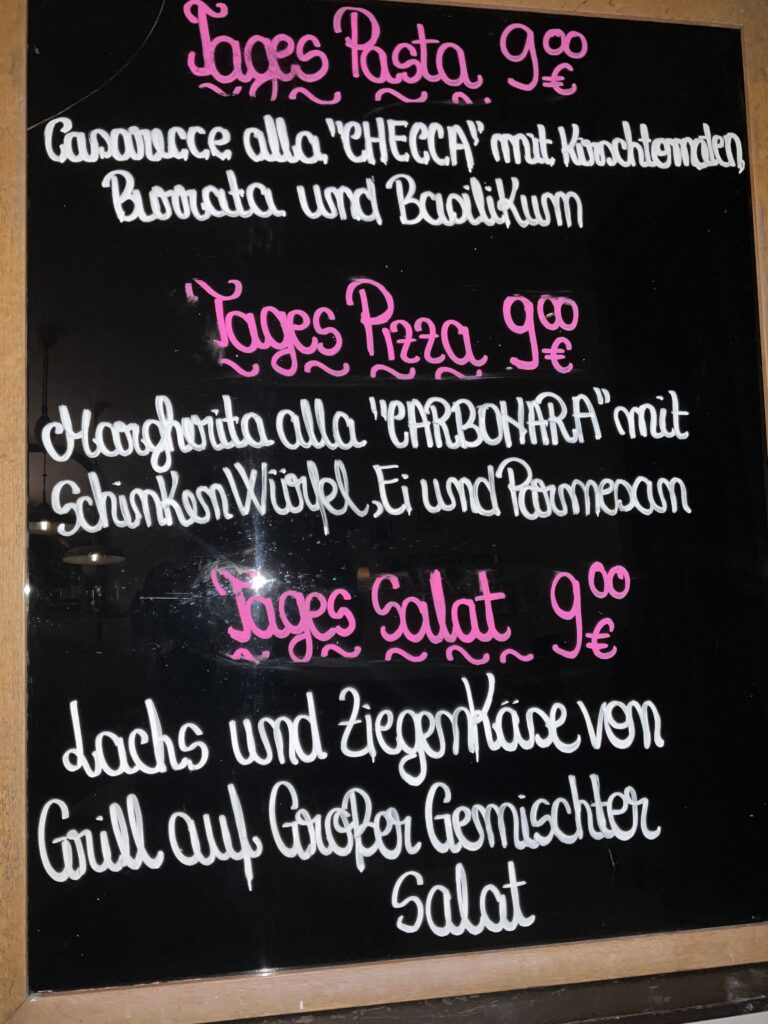 Tages Pasta 900 €
Casarecce alla "CHECCA" mit Kirschtomaten,
Burrata und Basilikum
Tages Pizza 900 €
Margherita alla "CARBONARA" mit
Schinken Würfel, Ei und Parmesan
Tages Salat 900 €
Lachs und Ziegenkäse von
Grill auf Großer Gemischter
Salat